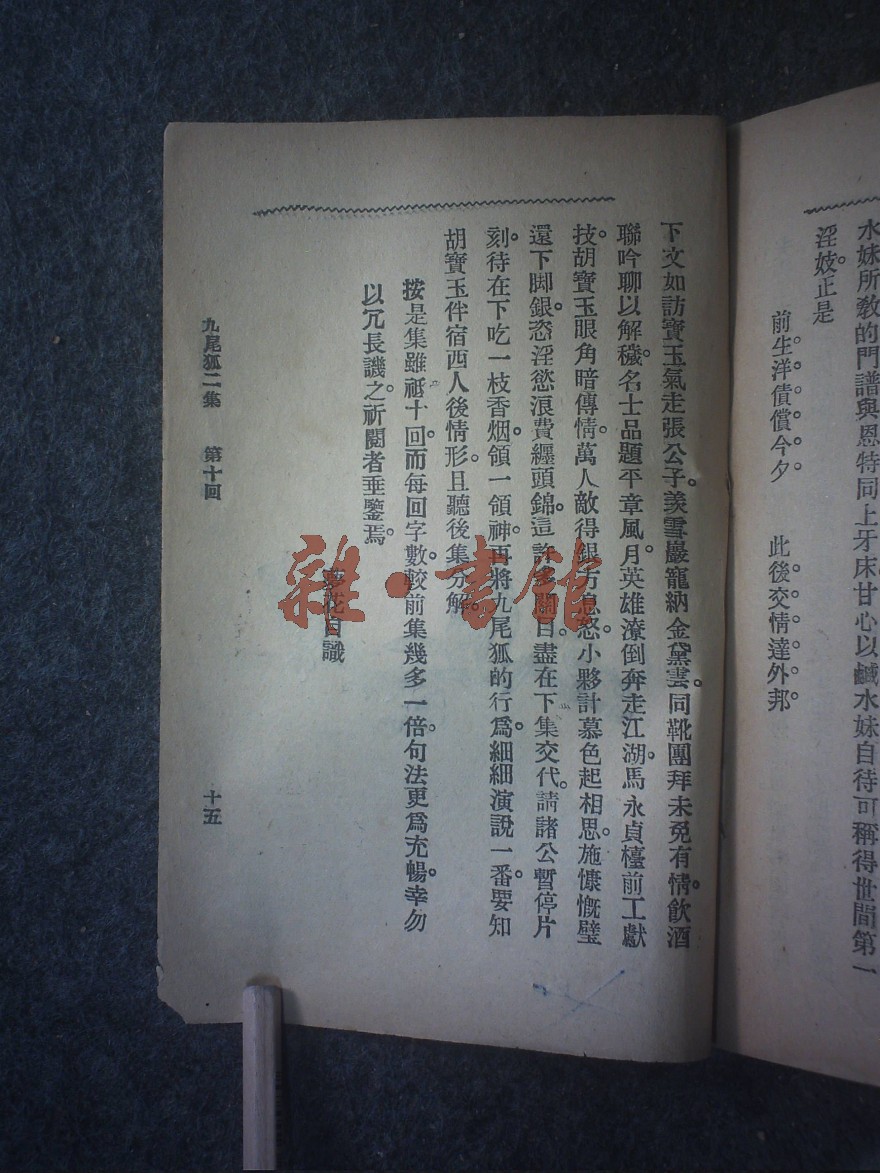 水妹所教的門譜與恩特同上牙床甘心以鹹水妹自待可稱得世間第一
淫妓。正是
前。生。洋。債。償。今。夕。 此。後。交。情。達。外。邦。
下文如訪寶玉氣走張公子。羨雪巖寵納金黛雲。同靴團拜未免有情。飲酒
聯吟聊以解穢。名士品題平章風月。英雄潦倒奔走江湖。馬永貞檯前工獻
技。胡寶玉眼角暗傳情。萬人敵得銀方息怒。小夥計慕色起相思。施慷慨璧
還下脚銀。恣淫慾浪費纏頭錦。這許多關目。盡在下集交代。請諸公暫停片
刻。待在下吃一枝香烟。領一領神。再將九尾狐的行爲細細演說一番。要知
胡寶玉伴宿西人後情形。且聽後集分解。
按是集雖祇十回。而每回字數。較前集幾多一倍。句法更爲充暢。幸勿
以冗長譏之。祈閱者垂鑒焉。
夢花自識
九尾狐二集 第十回 十五
雜·書館